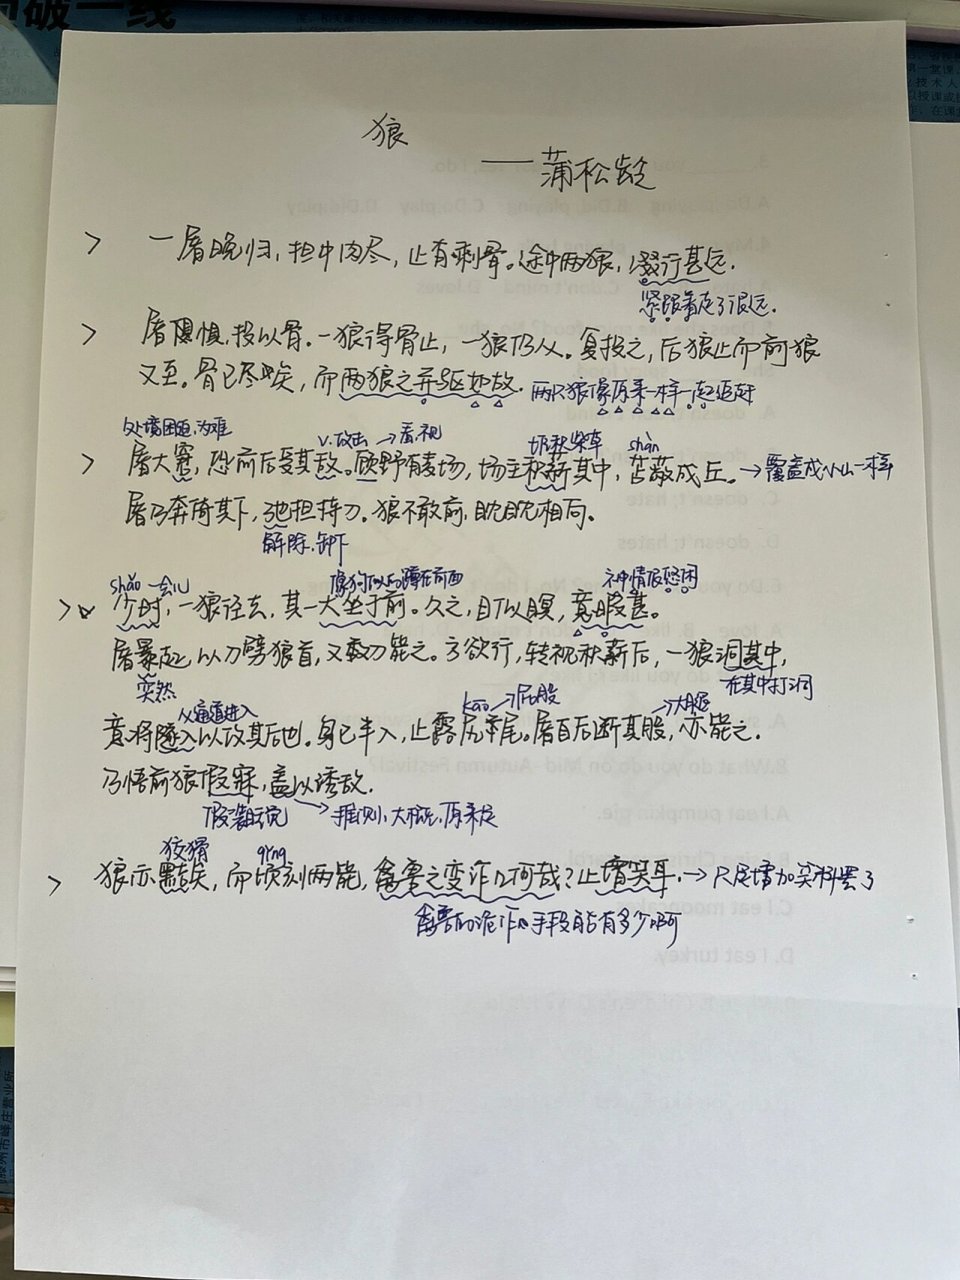 狼
——蒲松龄
一屠晚归，担中肉尽，止有剩骨。途中两狼，缀行甚远.
紧跟着走了很远.
屠惧，投以骨。一狼得骨止，一狼仍从。复投之，后狼止而前狼
又至。骨已尽矣，而两狼之并驱如故.
两只狼像原来一样一起追赶
处境困迫，为难
v.攻击 →看，视
堆积柴草 shàn
屠大窘，恐前后受其敌。顾野有麦场，场主积薪其中，苫蔽成丘。→覆盖成小山一样
屠乃奔倚其下，弛担持刀.狼不敢前，眈眈相向。
解除，卸下
shǎo 一会儿
像狗似的蹲在前面
神情很悠闲
少时，一狼径去，其一犬坐于前。久之，目似瞑，意暇甚。
屠暴起，以刀劈狼首，又数刀毙之。方欲行，转视积薪后，一狼洞其中，
突然
在其中打洞
从隧道进入
kāo→屁股
→大腿
意将隧入以攻其后也。身已半入，止露尻尾。屠自后断其股，亦毙之.
乃悟前狼假寐，盖以诱敌.
假装睡觉
推测，大概，原来是
狡猾
qǐng
狼亦黠矣，而顷刻两毙，禽兽之变诈几何哉？止增笑耳.→只是增加笑料罢了
禽兽的诡诈手段能有多少啊